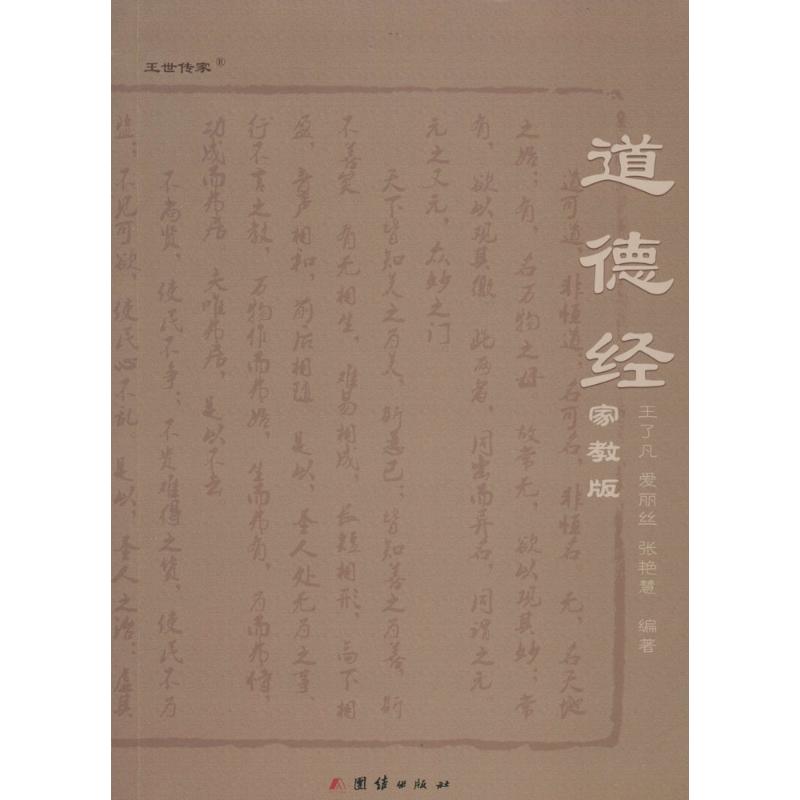 王世传家®
道德经
家教版
王了凡 爱丽丝 张艳慧 编著
道可道，非恒道；名可名，非恒名 无，名天地
之始；有，名万物之母。故常无，欲以观其妙；常
有，欲以观其徼 此两者，同出而异名，同谓之元
元之又元，众妙之门
天下皆知美之为美，斯恶已；皆知善之为善，斯
不善矣 有无相生，难易相成，长短相形，高下相
盈，音声相和，前后相随 是以，圣人处无为之事，
行不言之教，万物作而弗始，生而弗有，为而弗恃，
功成而弗居 夫唯弗居，是以不去
不尚贤，使民不争；不贵难得之货，使民不为
盗；不见可欲，使民心不乱。是以，圣人之治：虚其
团结出版社